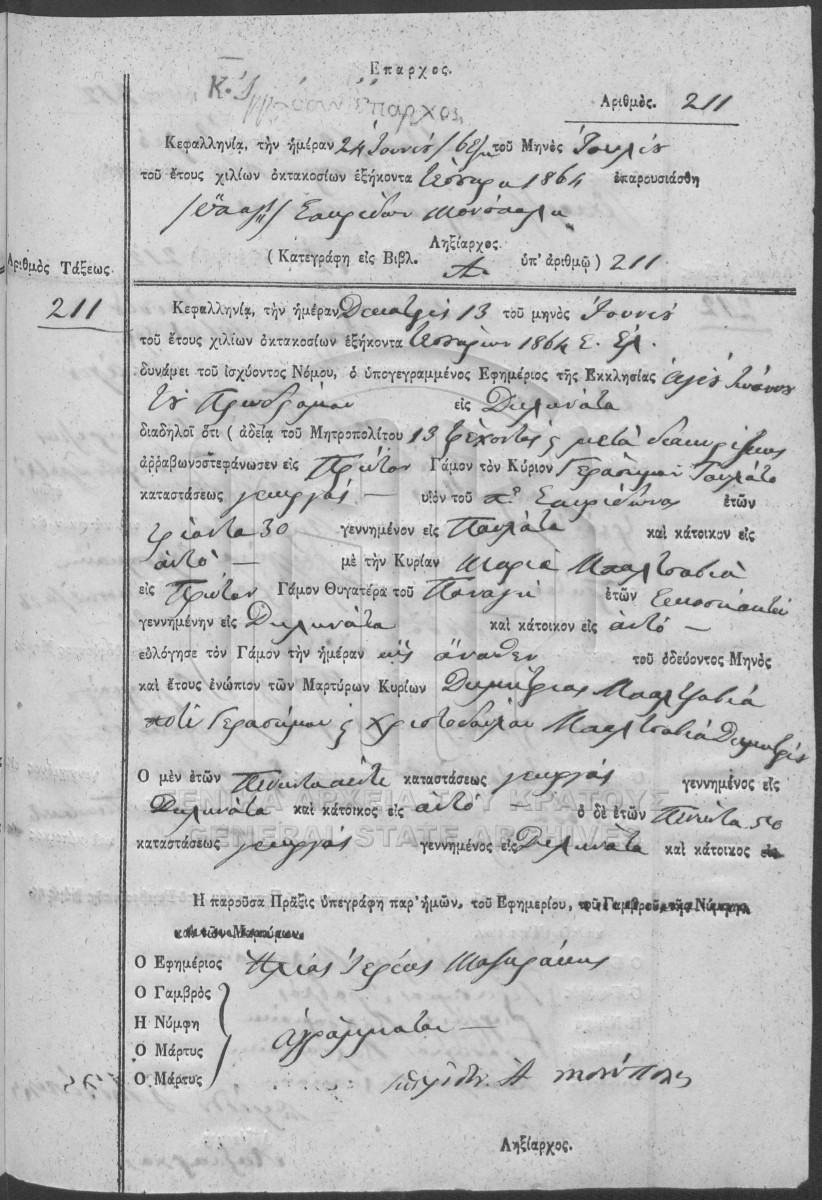 Επαρχος.
Ἔπαρχος
Ἀριθμὸς. 211
Κεφαλληνία, τὴν ἡμέραν 24 Ἰουνίου /6 τοῦ Μηνὸς Ἰουλίου
τοῦ ἔτους χιλίων ὀκτακοσίων ἑξήκοντα τέσσαρα 1864 ἐπαρουσιάσθη
Σπυρίδων
Ληξίαρχος.
( Κατεγράφη εἰς Βιβλ. Α. ὑπ' ἀριθμῷ ) 211
Ἀριθμὸς Τάξεως.
211
Κεφαλληνία, τὴν ἡμέραν Δεκατρεῖς 13 τοῦ μηνὸς Ἰουνίου
τοῦ ἔτους χιλίων ὀκτακοσίων ἑξήκοντα τεσσάρων 1864 Ε. Ε.
δυνάμει τοῦ ἰσχύοντος Νόμου, ὁ ὑπογεγραμμένος Ἐφημέριος τῆς Ἐκκλησίας Ἁγίου Ἰωάννου
τοῦ Προδρόμου εἰς Διλινάτα
διαδηλοῖ ὅτι ( ἀδείᾳ τοῦ Μητροπολίτου 13 τρέχοντος μετὰ
ἀῤῥαβωνοστεφάνωσεν εἰς Πρῶτον Γάμον τὸν Κύριον Γεράσιμον Παυλάτο
καταστάσεως γεωργὸς – υἱὸν τοῦ πʳ Σπυρίδωνος ἐτῶν
τριάντα 30 γεννημένον εἰς Παυλάτα καὶ κάτοικον εἰς
αὐτὸ – μὲ τὴν Κυρίαν Μαρία Μπαλτσαβιὰ
εἰς Πρῶτον Γάμον Θυγατέρα τοῦ Παναγῆ ἐτῶν εικοσιοκτὼ
γεννημένην εἰς Διλινάτα καὶ κάτοικον εἰς αὐτὸ –
εὐλόγησε τὸν Γάμον τὴν ἡμέραν ὡς ἄνωθεν τοῦ ὁδεύοντος Μηνὸς
καὶ ἔτους ἐνώπιον τῶν Μαρτύρων Κυρίων Δημήτριος Μπαλτσαβιὰ
ποτὲ Γερασίμου Χριστοδούλου Μπαλτσαβιὰ Δημητρίου
Ο μὲν ἐτῶν Πενηνταπέντε καταστάσεως γεωργὸς γεννημένος εἰς
Διλινάτα καὶ κάτοικος εἰς αὐτὸ – ὁ δὲ ἐτῶν Πενήντα 50
καταστάσεως γεωργὸς γεννημένος εἰς Διλινάτα καὶ κάτοικος εἰς
ΓΕΝΙΚΑ ΑΡΧΕΙΑ ΤΟΥ ΚΡΑΤΟΥΣ
GENERAL STATE ARCHIVES
Η παροῦσα Πρᾶξις ὑπεγράφη παρ' ἡμῶν, τοῦ Ἐφημερίου, τοῦ Γαμβροῦ, τῆς Νύμφης
καὶ τῶν Μαρτύρων.
Ο Ἐφημέριος Ἠλίας Ἱερέας
Ο Γαμβρὸς
Η Νύμφη ἀγράμματοι –
Ο Μάρτυς
Ο Μάρτυς
Ληξίαρχος.